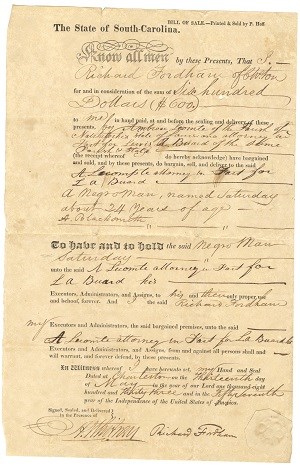 BILL OF SALE.—Printed & Sold by P. Hoff
The State of South-Carolina.
Know all men by these Presents, That I
Richard Fordham of
for and in consideration of the sum of Six hundred
Dollars ($600)
to me in hand paid, at and before the sealing and delivery of these
presents, by Ambrose Lecomte of the Parish of
State attorney in
fact for Lewis La Buard of the same
Parish & State
(the receipt whereof I do hereby acknowledge) have bargained
and sold, and by these presents, do bargain, sell, and deliver to the said
A Lecomte attorney in Fact for
La Buard
A Negro Man, named Saturday
about 24 Years of age
A Blacksmith
To have and to hold the said Negro Man
Saturday
unto the said A Lecomte attorney in Fact for
La Buard his
Executors, Administrators, and Assigns, to his and their only proper use
and behoof, forever. And I the said Richard Fordham
my Executors and Administrators, the said bargained premises, unto the said
A Lecomte attorney in Fact for La Buard his
Executors, Administrators and Assigns, from and against all persons shall and
will warrant, and forever defend, by these presents.
In Witness whereof I have hereunto set my Hand and Seal
Dated at Charleston on the Thirteenth day
of May in the year of our Lord one thousand eight
hundred and thirty three and in the Fifty seventh
year of the Independence of the United States of America.
Signed, Sealed, and Delivered
Richard Fordham